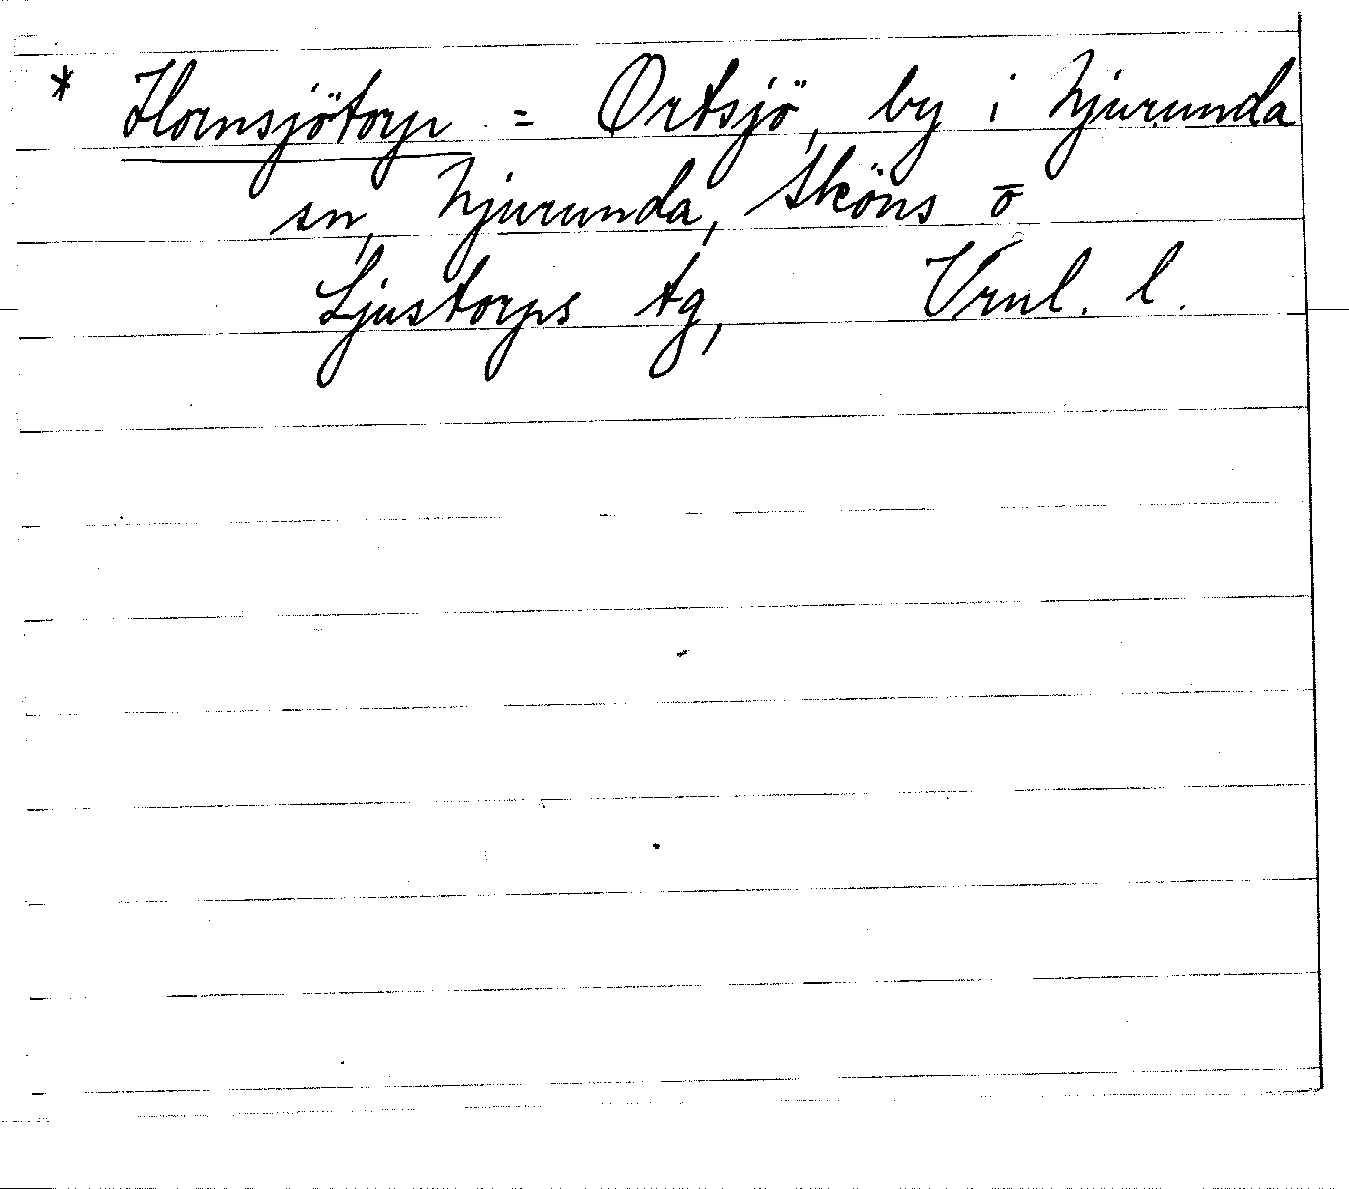 * Hornsjötorp = Ortsjö, by i Njurunda
sn, Njurunda, Sköns o
Ljustorps tg, Vrnl. l.